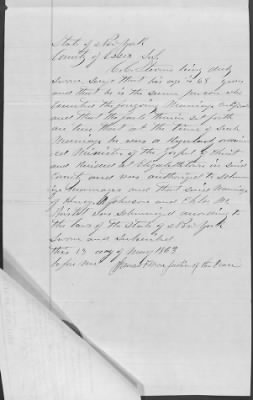 State of New York
County of Essex
being duly
sworn says that his age is 68 years
and that he is the same person who
executed the foregoing Marriage certificate
and that the facts therein set forth
are true that at the time of such
Marriage he was a Regularly ordain
ed Minister of the gospel of Christ
and resided at Elizabethtown in said
County and was authorized to solemn
ize marriages and that said Marriage
of Henry Johnson and Chloe M.
was solemnized according to
the laws of the State of New York
Sworn and Subscribed
this 13 day of May 1863
before me Justice of the Peace